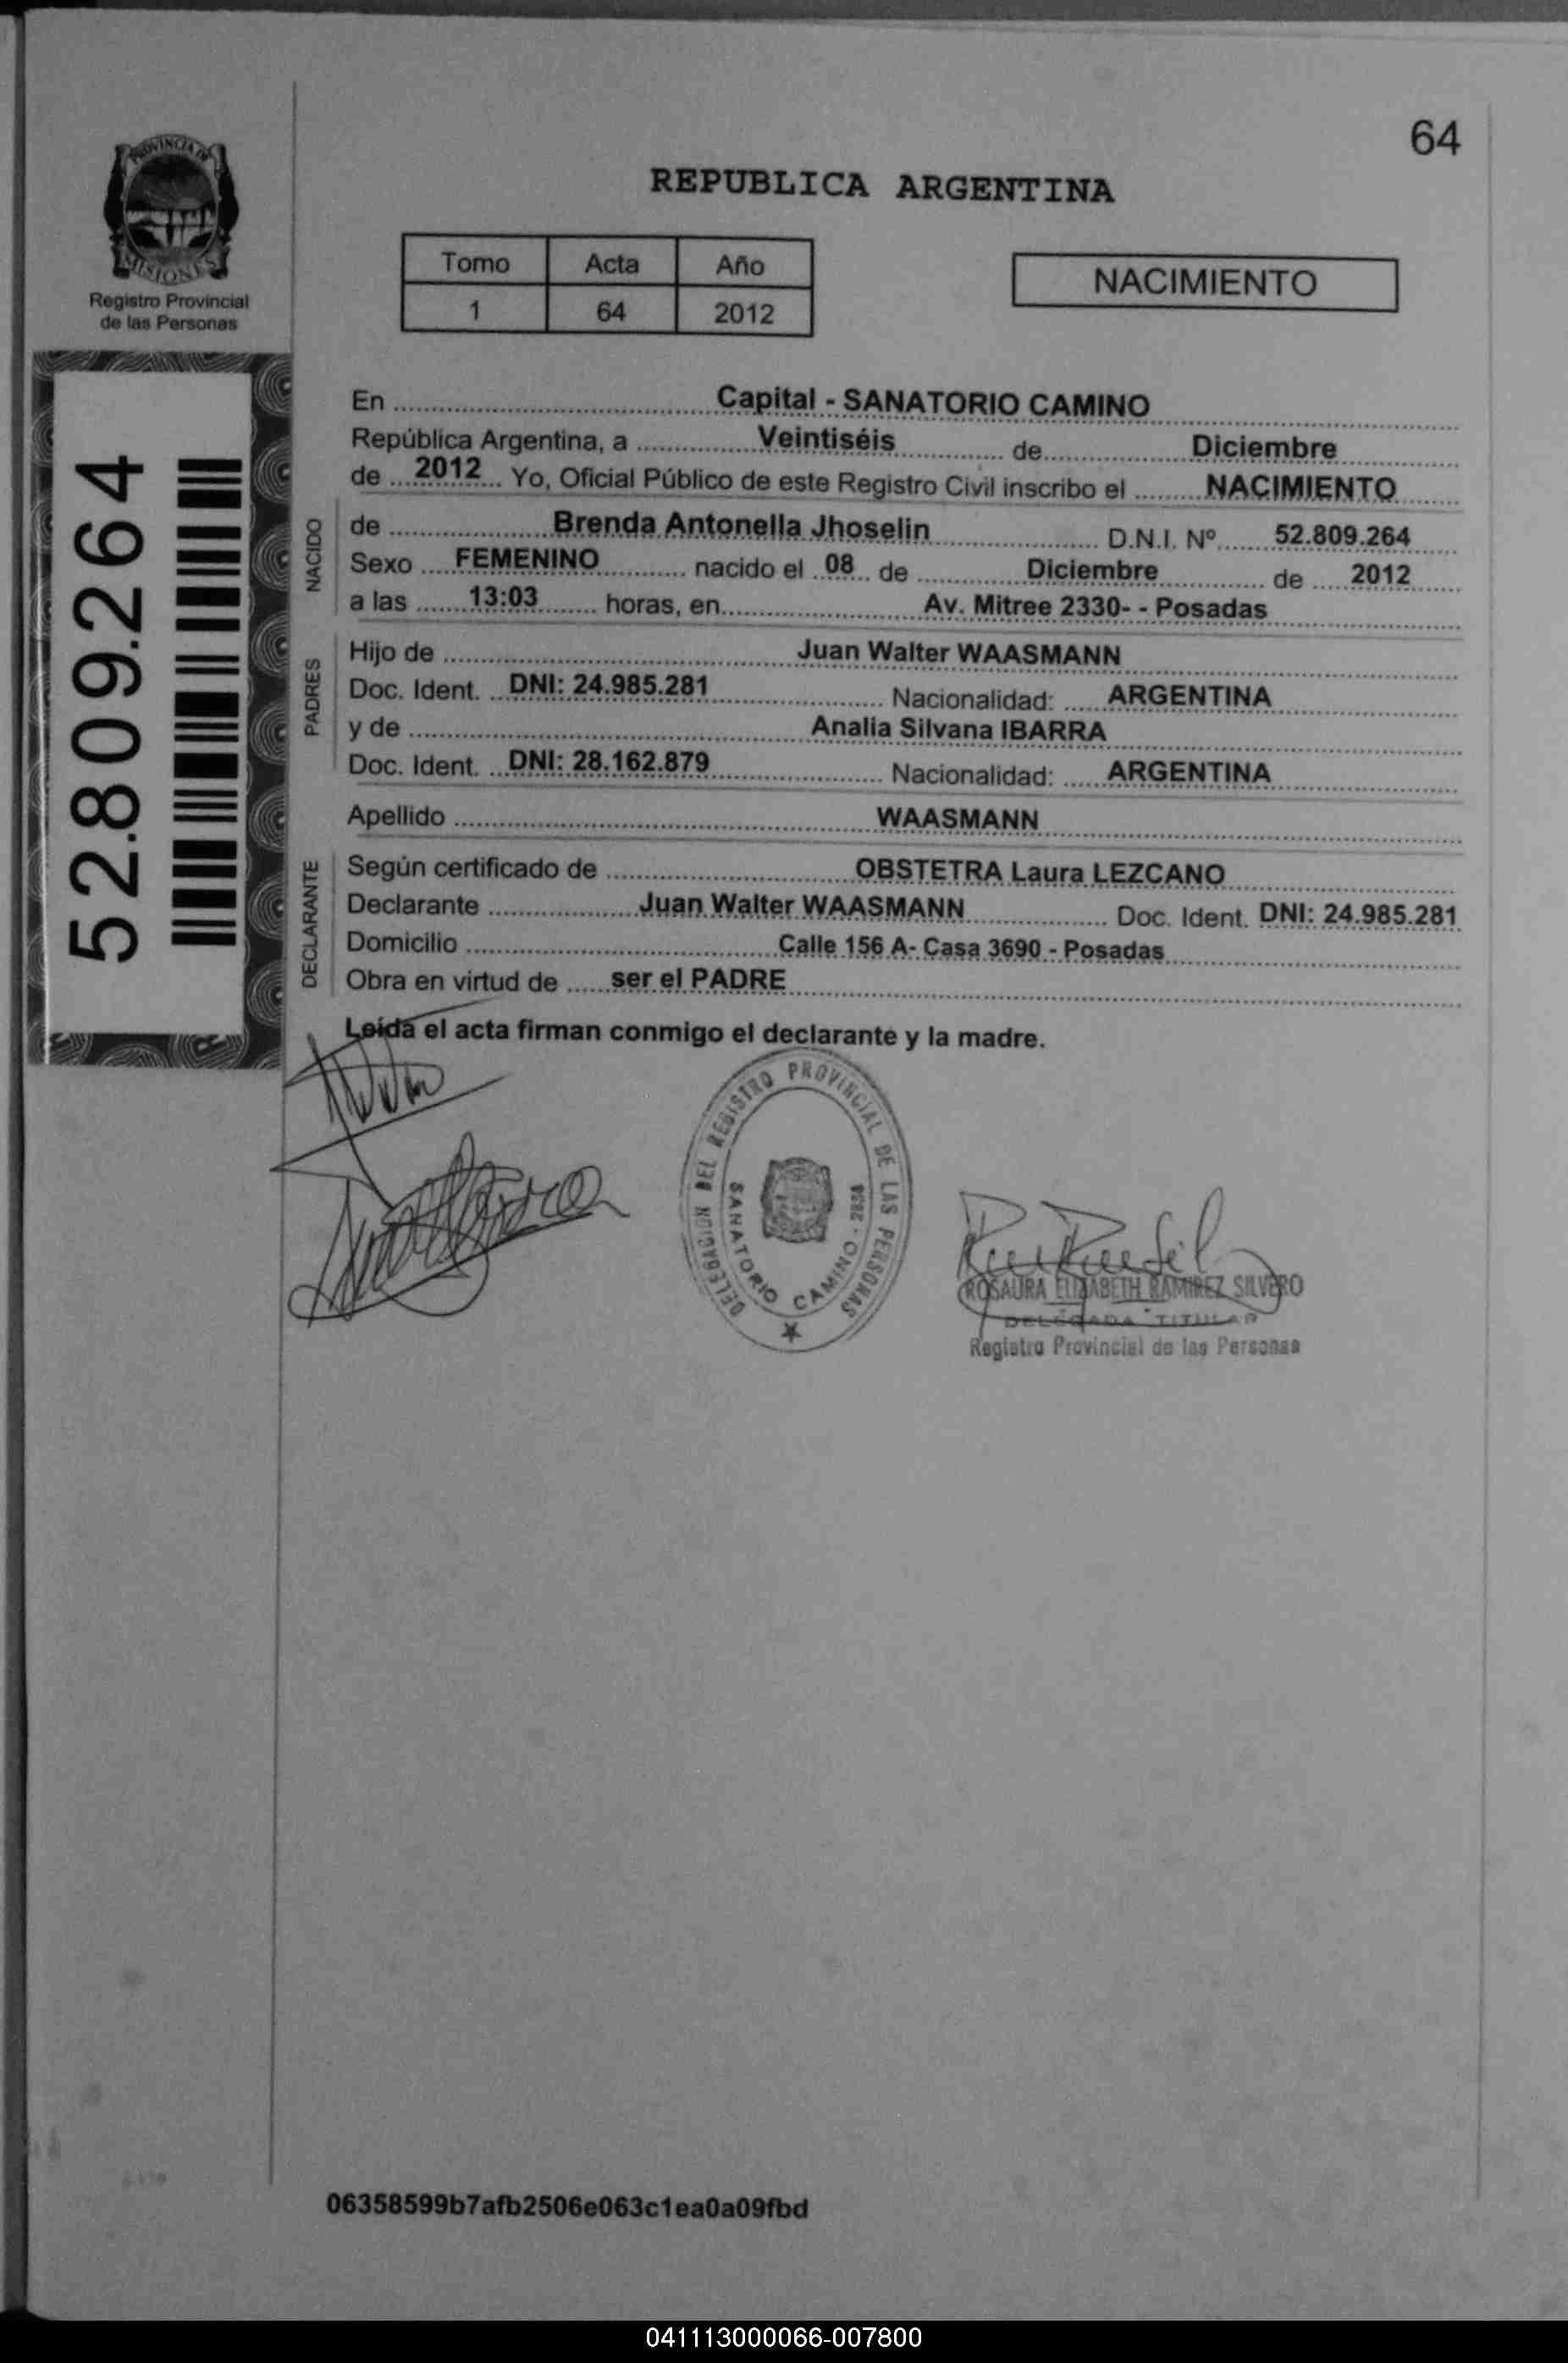 64
PROVINCIA DE
MISIONES
Registro Provincial
de las Personas
REPUBLICA ARGENTINA
Tomo Acta Año
1 64 2012
NACIMIENTO
52.809.264
En ........ Capital - SANATORIO CAMINO
República Argentina, a ........ Veintiséis ........ de ........ Diciembre
de ... 2012 ... Yo, Oficial Público de este Registro Civil inscribo el ........ NACIMIENTO
NACIDO
de ........ Brenda Antonella Jhoselin ........ D.N.I. Nº ........ 52.809.264
Sexo ..... FEMENINO ........ nacido el .. 08 .. de ........ Diciembre ........ de ..... 2012
a las ....... 13:03 ....... horas, en ........ Av. Mitree 2330- - Posadas
PADRES
Hijo de ........ Juan Walter WAASMANN
Doc. Ident. ... DNI: 24.985.281 ........ Nacionalidad: ..... ARGENTINA
y de ........ Analia Silvana IBARRA
Doc. Ident. ... DNI: 28.162.879 ........ Nacionalidad: ..... ARGENTINA
Apellido ........ WAASMANN
DECLARANTE
Según certificado de ........ OBSTETRA Laura LEZCANO
Declarante ........ Juan Walter WAASMANN ........ Doc. Ident. DNI: 24.985.281
Domicilio ........ Calle 156 A- Casa 3690 - Posadas
Obra en virtud de ...... ser el PADRE
Leída el acta firman conmigo el declarante y la madre.
DELEGACION DEL REGISTRO PROVINCIAL DE LAS PERSONAS
SANATORIO CAMINO -
ROSAURA ELIZABETH RAMIREZ SILVERO
DELEGADA TITULAR
Registro Provincial de las Personas
06358599b7afb2506e063c1ea0a09fbd
041113000066-007800